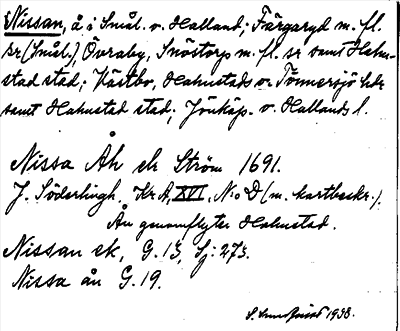 Nissan, å i Smål. o. Halland; Färgaryd m. fl.
sr (Smål.), Övraby, Snöstorp m. fl. sr samt Halm-
stad stad; Västbo, Halmstads o. Tönnersjö hdr
samt Halmstad stad; Jönköp. o. Hallands l.
Nissa Åh elr Ström 1691.
J. Söderlingh Kr A, XVI, N:o D (m. kartbeskr.).
Ån genomflyter Halmstad.
Nissan ek, G. 13, Sj: 273.
Nissa ån G. 19.
1938.